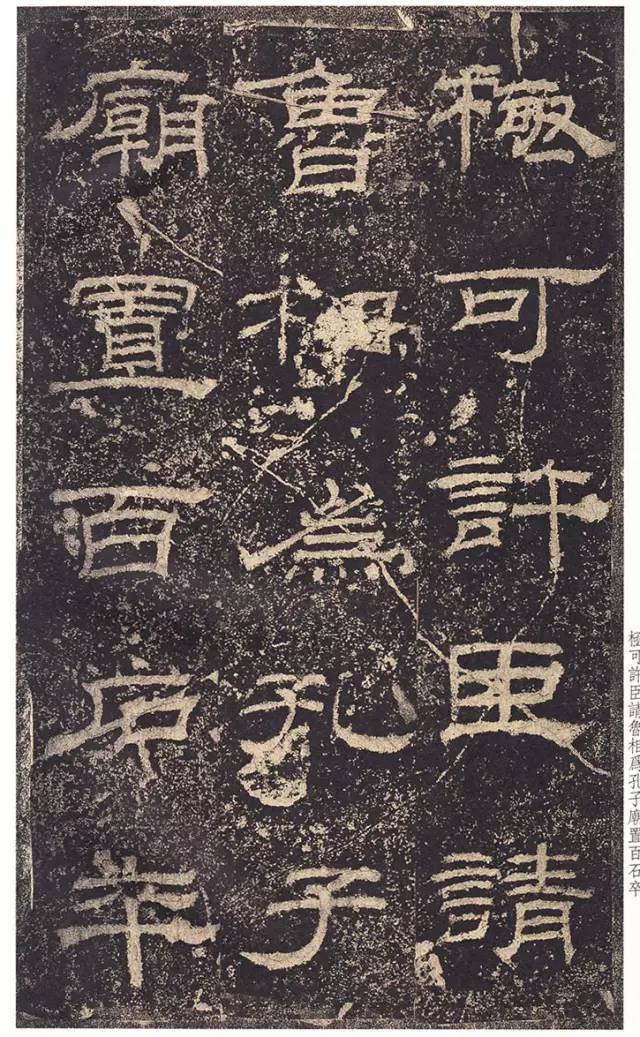 極可許臣請
魯相爲孔子
廟置百石卒
極可許臣請魯相爲孔子廟置百石卒